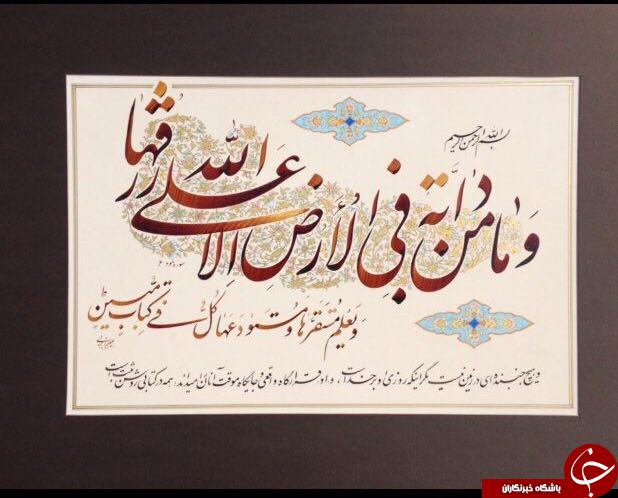 بسم الله الرحمن الرحیم
وَمَا مِن دَابَّةٍ فِی الأَرْضِ إِلَّا عَلَی اللهِ رِزْقُهَا
وَ یَعْلَمُ مُسْتَقَرَّهَا وَ مُسْتَوْدَعَهَا کُلٌّ فِی کِتَابٍ مُبِین
و هیچ جنبنده‌ای در زمین نیست مگر اینکه روزی او بر خداست، و او قرارگاه واقعی و جایگاه موقت آنان را میداند؛ همه در کتابی روشن ثبت است
باشگاه خبرنگاران